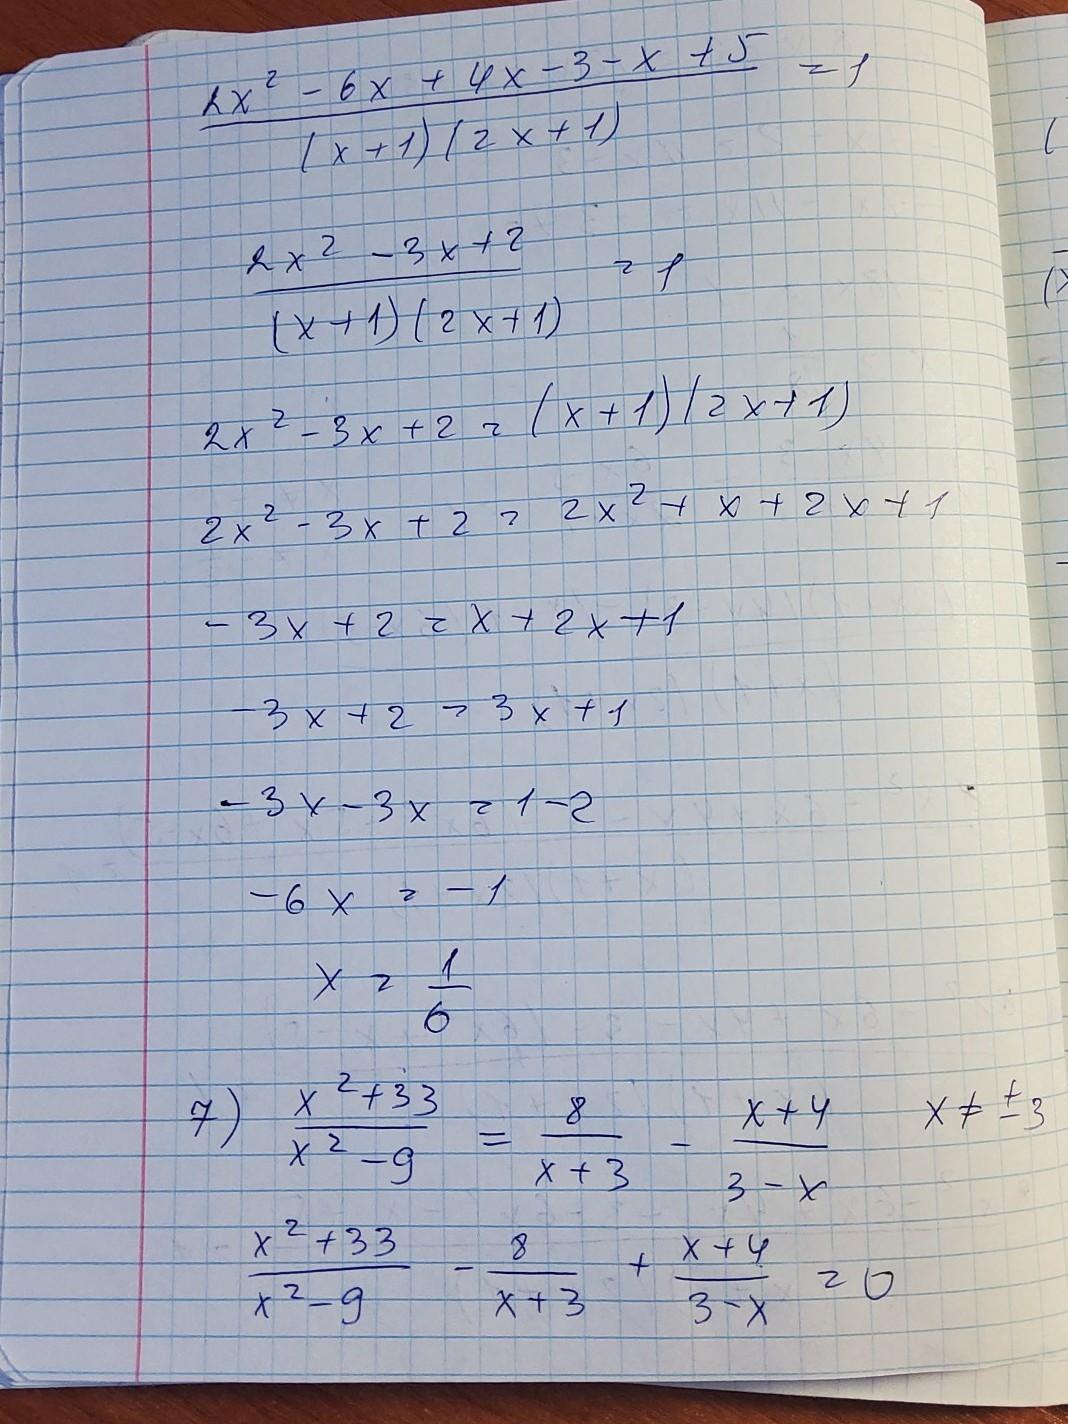 2x² - 6x + 4x - 3 - x + 5 / (x+1)(2x+1) = 1
2x² - 3x + 2 / (x+1)(2x+1) = 1
2x² - 3x + 2 = (x+1)(2x+1)
2x² - 3x + 2 = 2x² + x + 2x + 1
-3x + 2 = x + 2x + 1
-3x + 2 = 3x + 1
-3x - 3x = 1 - 2
-6x = -1
x = 1/6
7) x² + 33 / x² - 9 = 8 / x + 3 - x + 4 / 3 - x x ≠ ±3
x² + 33 / x² - 9 - 8 / x + 3 + x + 4 / 3 - x = 0